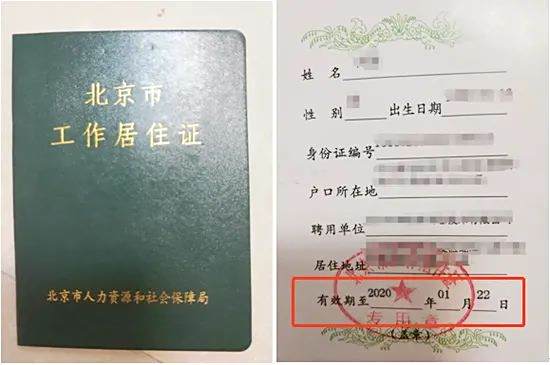 北京市
工作居住证
北京市人力资源和社会保障局
姓名
性别 出生日期
身份证编号
户口所在地
聘用单位
居住地址
有效期至2020年01月22日
专用章
(盖章)